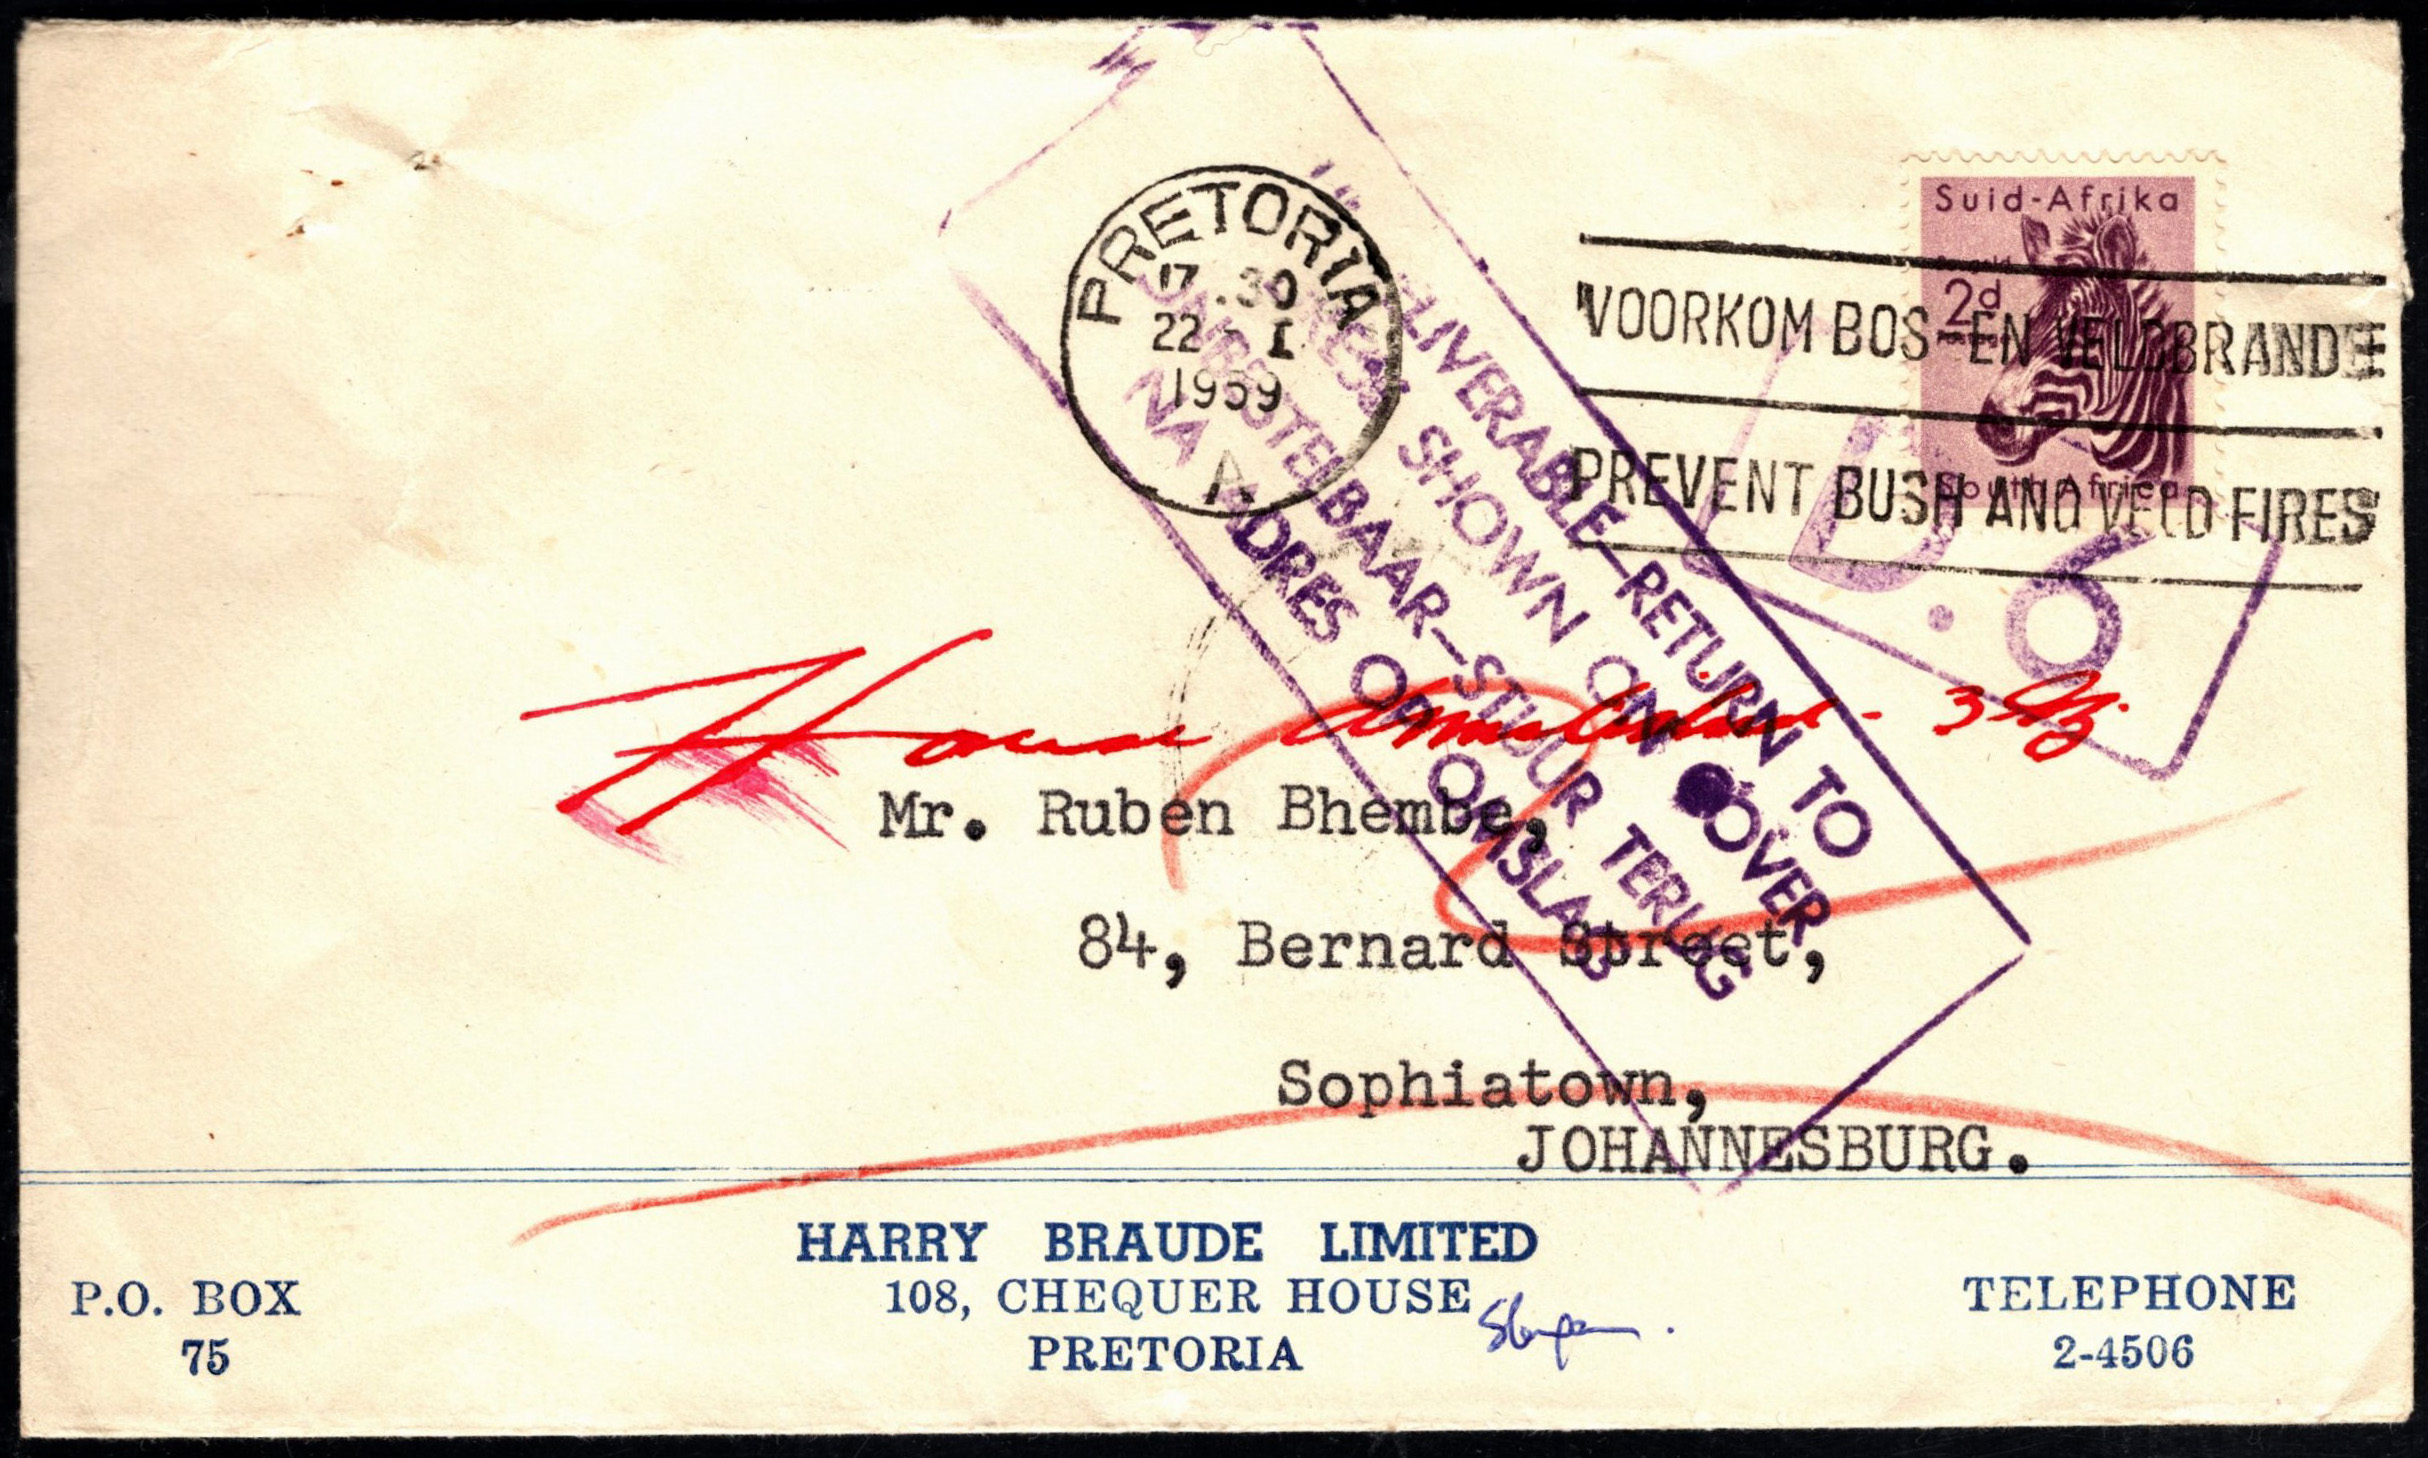 PRETORIA
17.30
22 I
1959
A
Suid-Afrika
2d
South Africa
VOORKOM BOS-EN VELDBRANDE
PREVENT BUSH AND VELD FIRES
DELIVERABLE—RETURN TO
SHOWN ON COVER
ONBESTELBAAR—STUUR TERUG
NA ADRES OP OMSLAG
D.6
House demolished
Mr. Ruben Bhembe,
84, Bernard Street,
Sophiatown,
JOHANNESBURG.
HARRY BRAUDE LIMITED
108, CHEQUER HOUSE
PRETORIA
P.O. BOX
75
TELEPHONE
2-4506